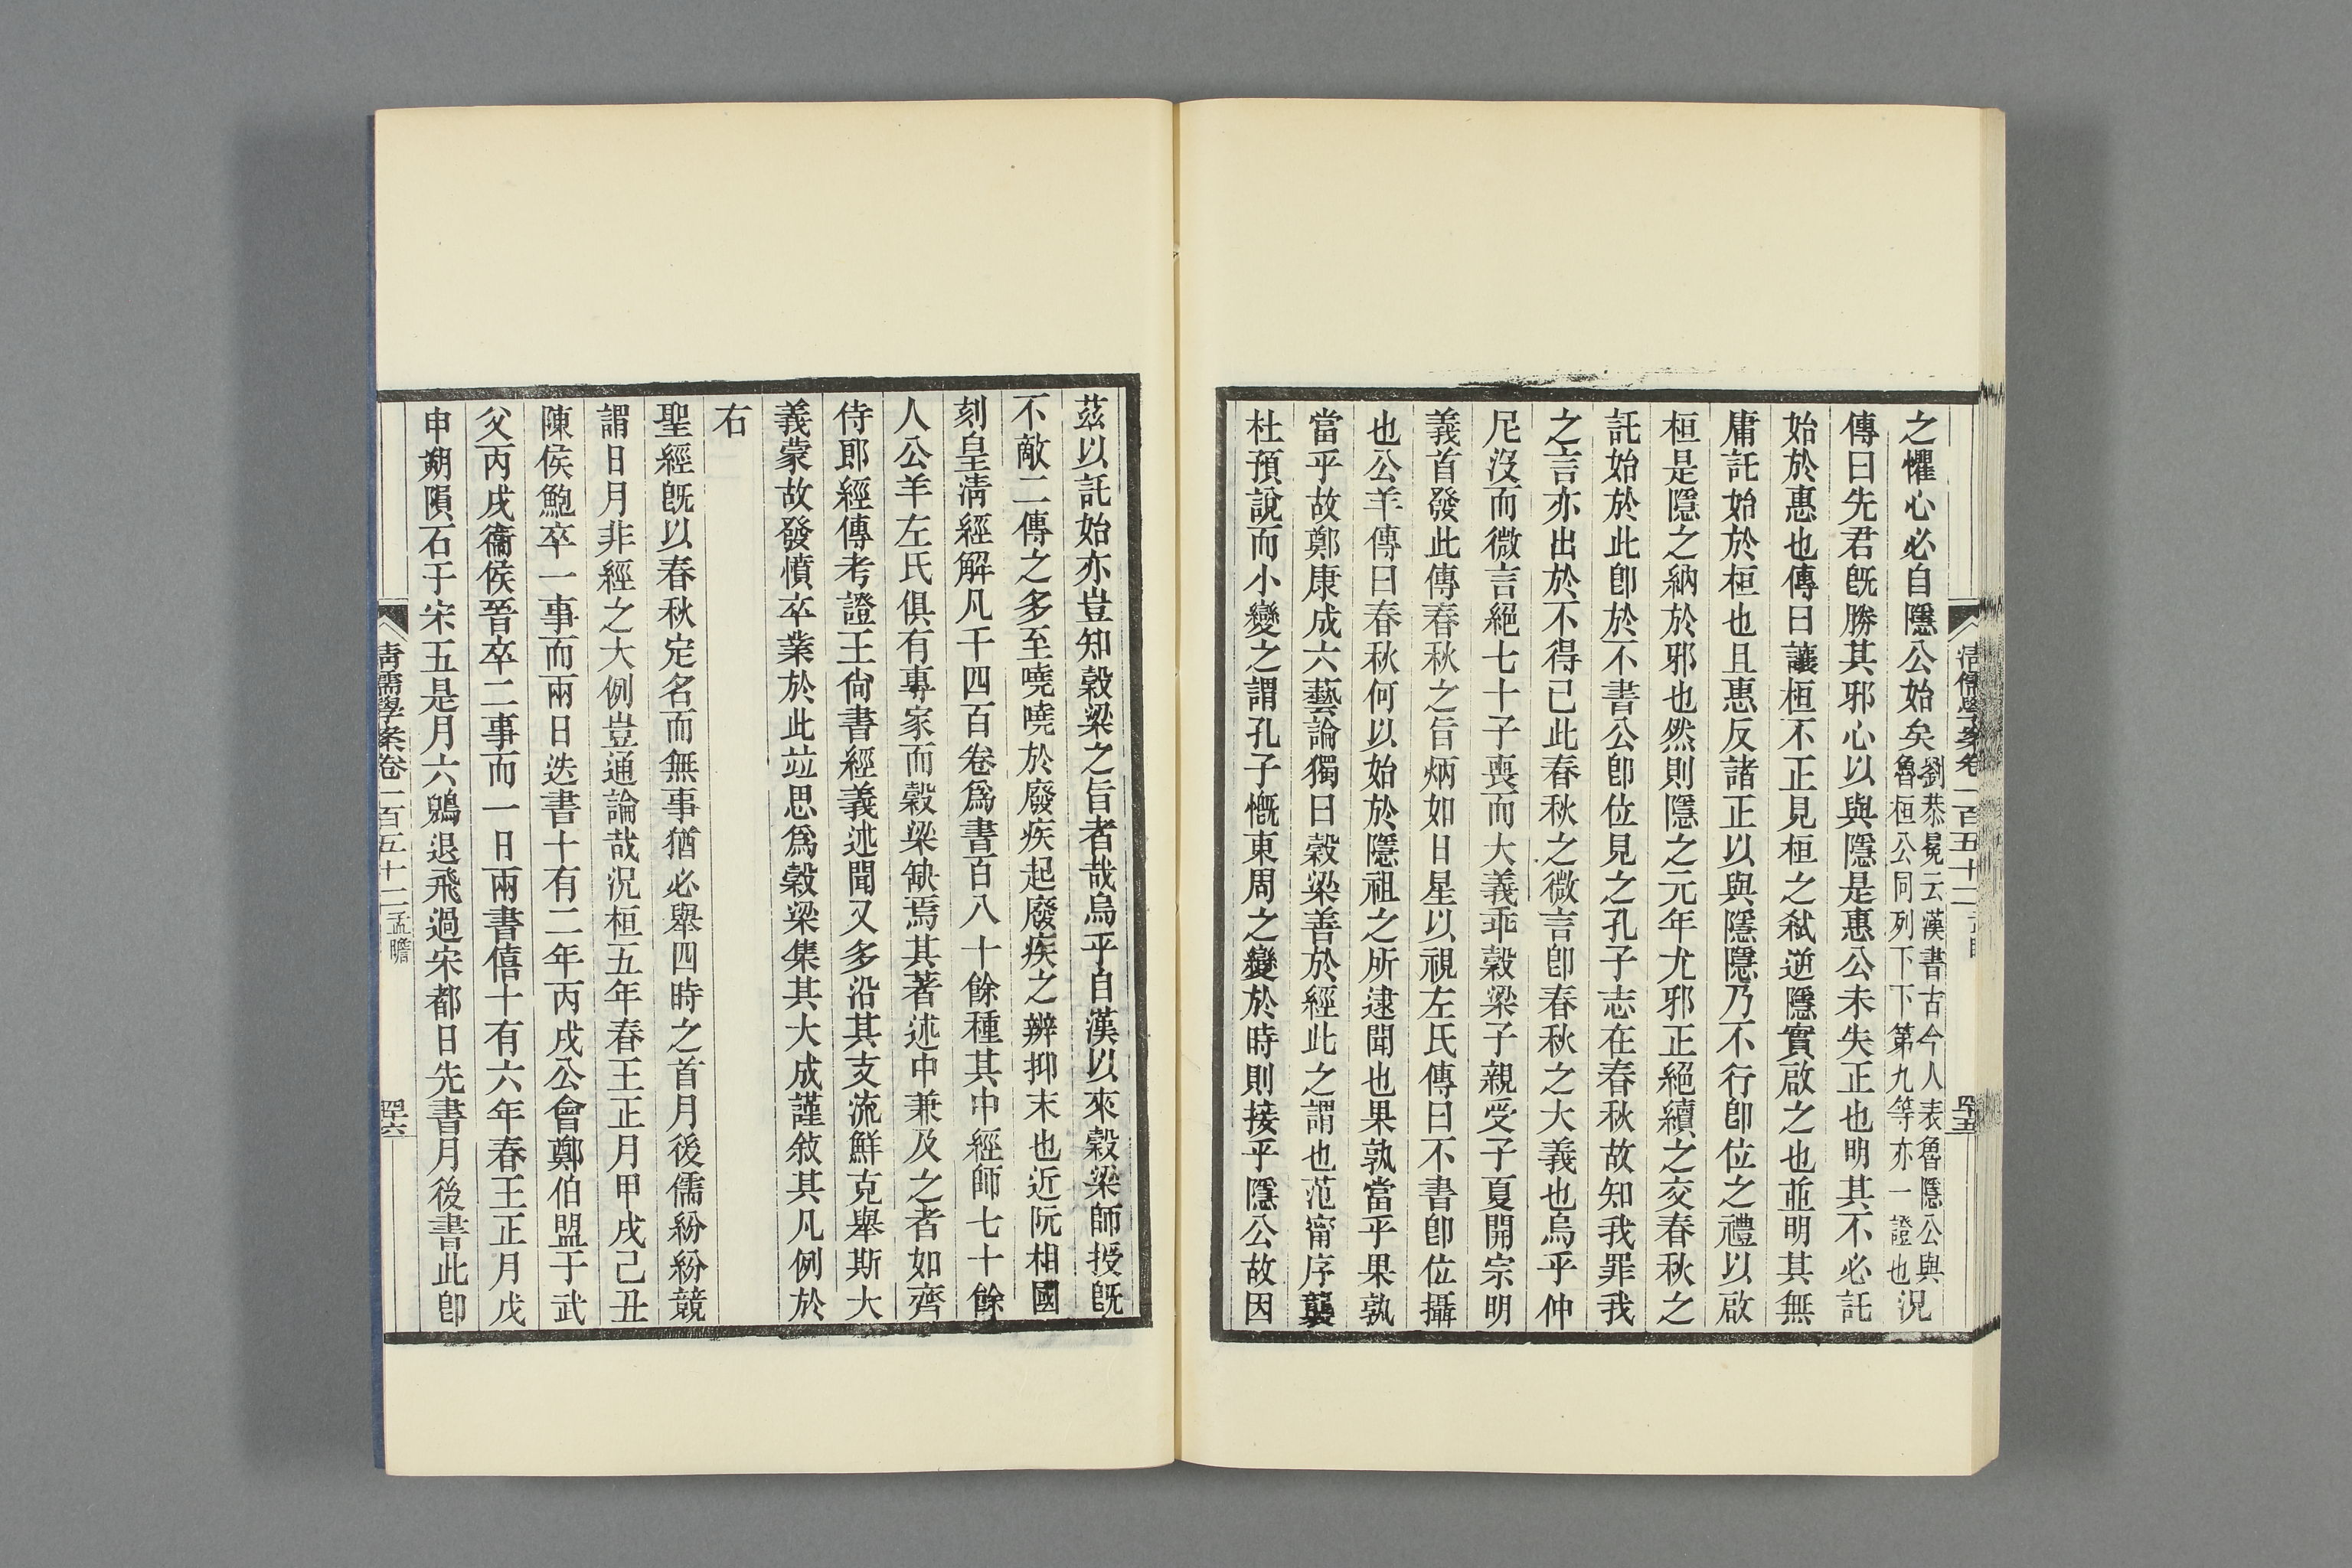 之懼心必自隱公始矣劉恭冕云漢書古今人表魯隱公與魯桓公同列下下第九等亦一證也況
傳曰先君旣勝其邪心以與隱是惠公未失正也明其不必託
始於惠也傳曰讓桓不正見桓之弒逆隱實啟之也並明其無
庸託始於桓也且惠反諸正以與隱隱乃不行卽位之禮以啟
桓是隱之納於邪也然則隱之元年尤邪正絕續之交春秋之
託始於此卽於不書公卽位見之孔子志在春秋故知我罪我
之言亦出於不得已此春秋之微言卽春秋之大義也烏乎仲
尼沒而微言絕七十子喪而大義乖穀梁子親受子夏開宗明
義首發此傳春秋之旨炳如日星以視左氏傳曰不書卽位攝
也公羊傳曰春秋何以始於隱祖之所逮聞也果孰當乎果孰
當乎故鄭康成六藝論獨曰穀梁善於經此之謂也范甯序襲
杜預說而小變之謂孔子慨東周之變於時則接乎隱公故因
清儒學案卷一百五十二
四十五
茲以託始亦豈知穀梁之旨者哉烏乎自漢以來穀梁師授旣
不敵二傳之多至嘵嘵於廢疾起廢疾之辨抑末也近阮相國
刻皇清經解凡千四百卷爲書百八十餘種其中經師七十餘
人公羊左氏俱有專家而穀梁缺焉其著述中兼及之者如齊
侍郎經傳考證王尙書經義述聞又多沿其支流鮮克舉斯大
義蒙故發憤卒業於此竝思爲穀梁集其大成謹敘其凡例於
右
聖經旣以春秋定名而無事猶必舉四時之首月後儒紛紛競
謂日月非經之大例豈通論哉況桓五年春王正月甲戌己丑
陳侯鮑卒一事而兩日迭書十有二年丙戌公會鄭伯盟于武
父丙戌衞侯晉卒二事而一日兩書僖十有六年春王正月戊
申朔隕石于宋五是月六鷁退飛過宋都日先書月後書此卽
清儒學案卷一百五十二 孟瞻
四十六